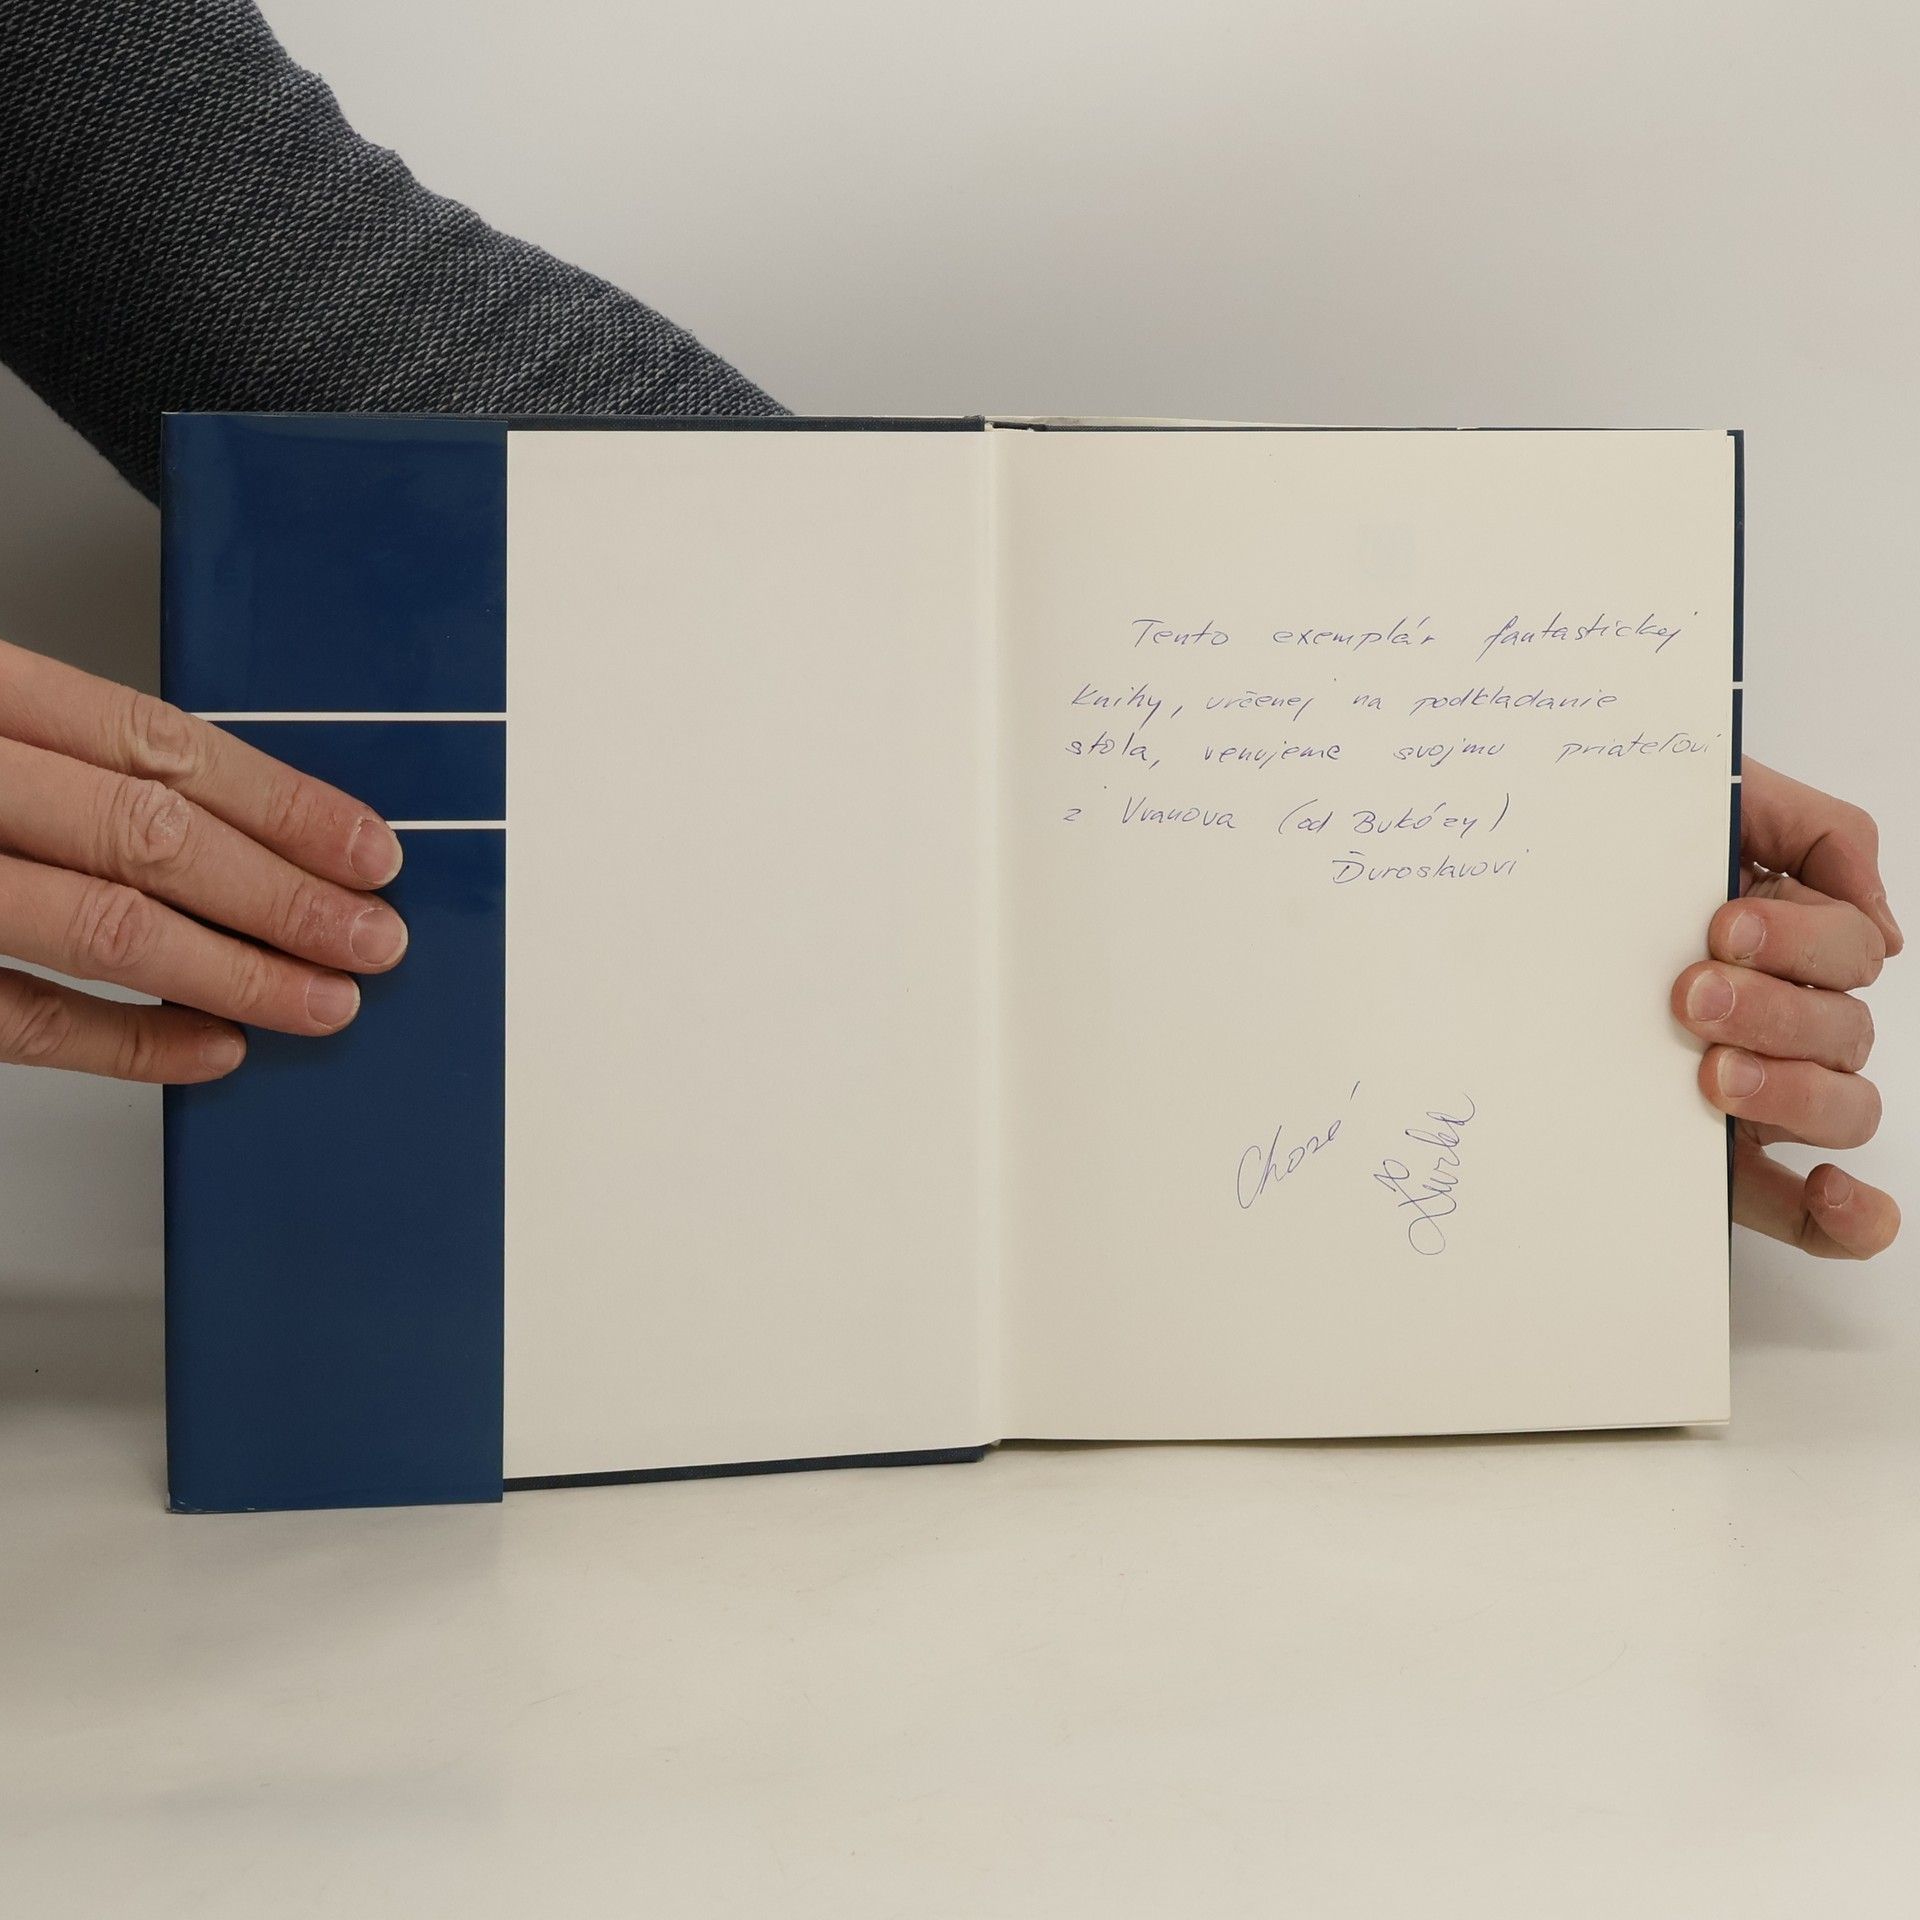 Tento exemplár fantastickej
knihy, určenej na podkladanie
stola, venujeme svojmu priateľovi
z Vranova (od Bukózy)
Ďuroslavovi
Chosé